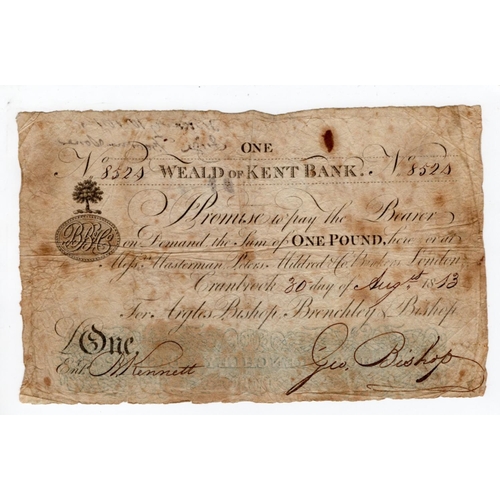 ONE
No 8524 WEALD OF KENT BANK. No 8524
I Promise to pay the Bearer
on Demand the Sum of ONE POUND, here or at
Messrs Masterman Peters Mildred & Co Bankers London
Cranbrook 30 day of Augst 1813
For Argles Bishop Brenchley & Bishop
£One
Entd Kennett Geo. Bishop